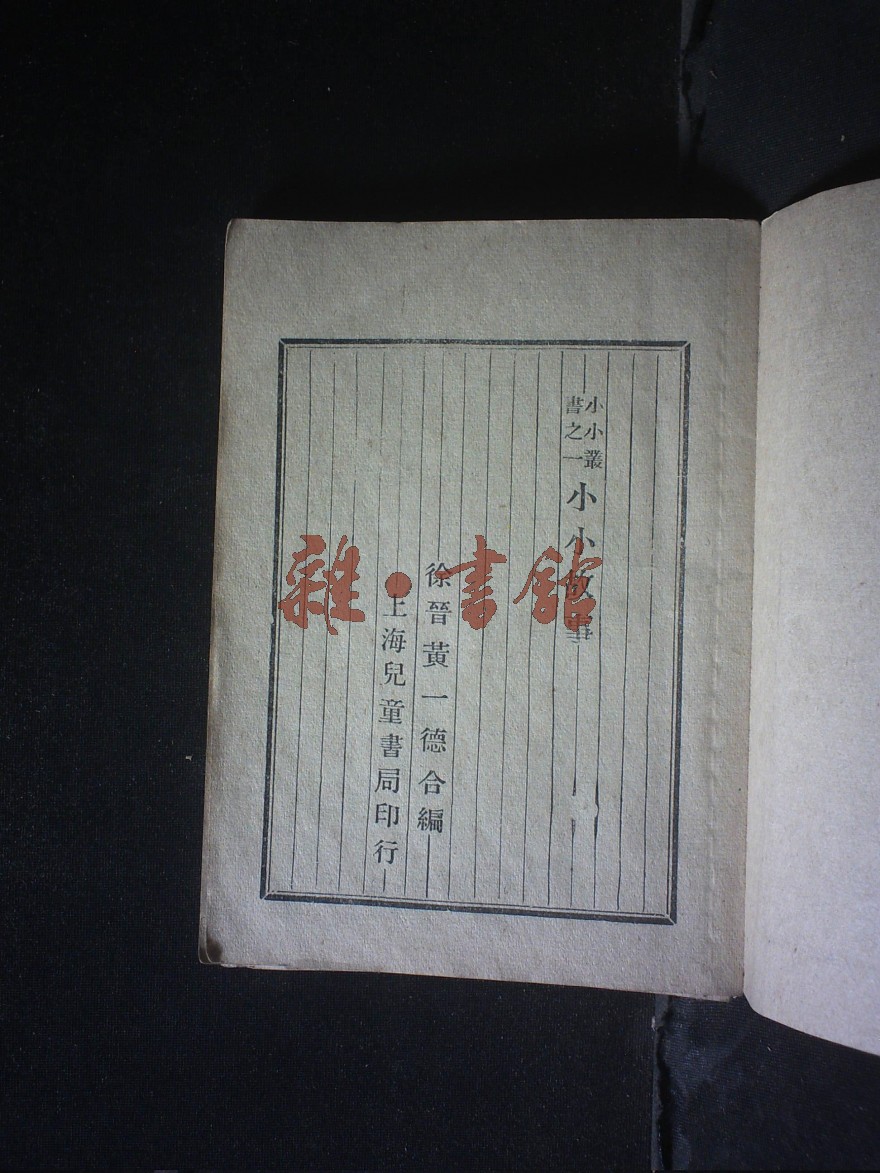 小小叢
書之一
小小故事
徐晉黃一德合編
上海兒童書局印行
雜·書館